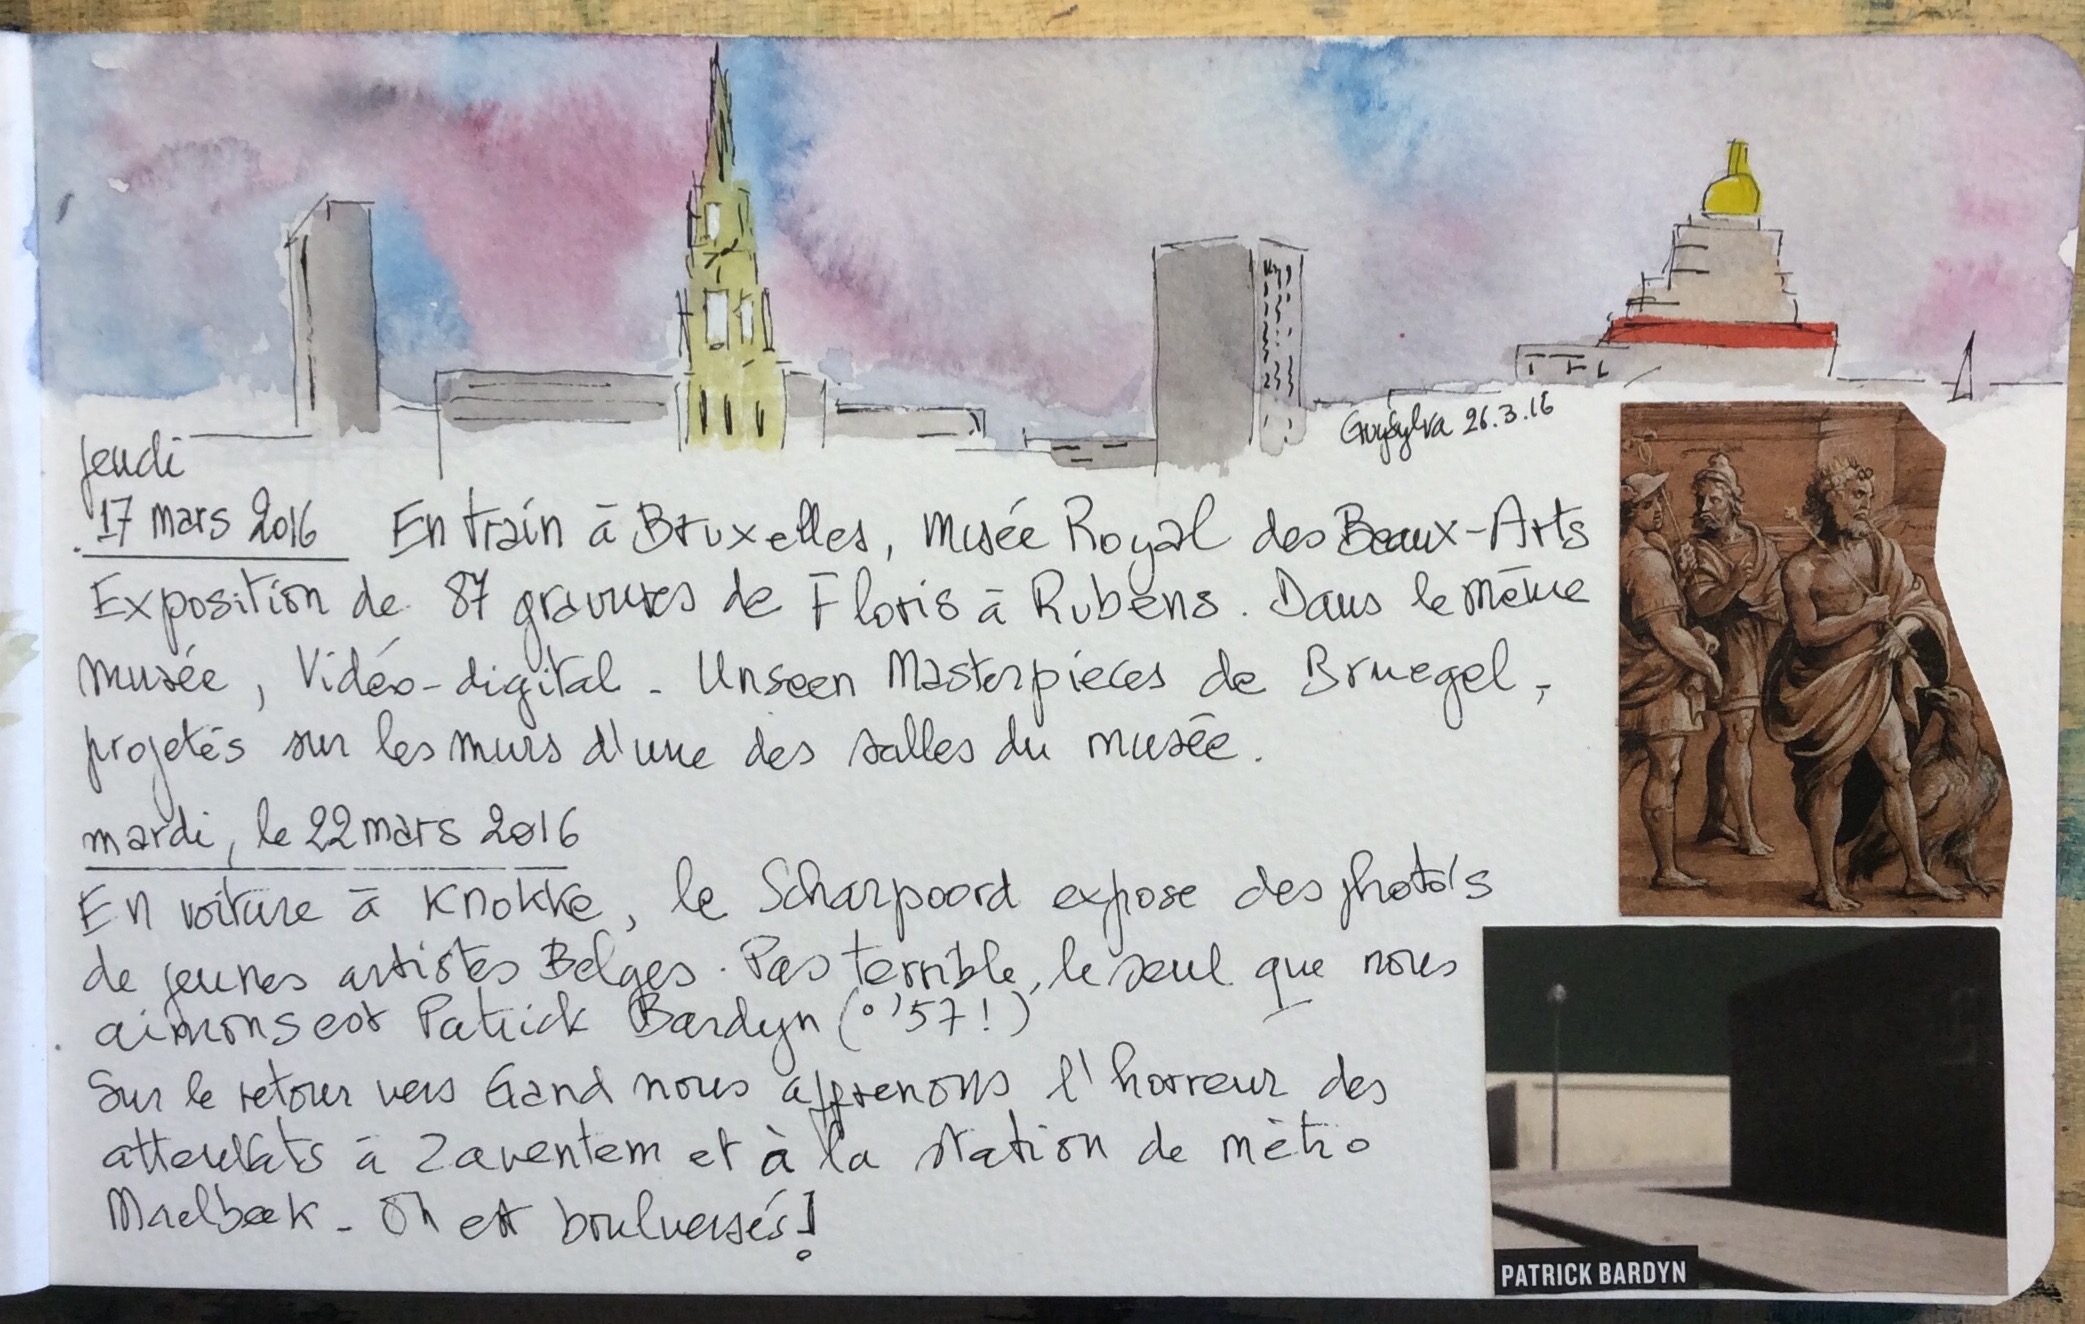 GuySylva 26.3.16
jeudi
17 mars 2016 En train à Bruxelles, Musée Royal des Beaux-Arts
Exposition de 87 gravures de Floris à Rubens. Dans le même
musée, Vidéo-digital - Unseen Masterpieces de Bruegel,
projetés sur les murs d'une des salles du musée.
mardi, le 22 mars 2016
En voiture à Knokke, le Scharpoord expose des photo's
de jeunes artistes Belges. Pas terrible, le seul que nous
aimons est Patrick Bardyn (°'57!)
Sur le retour vers Gand nous apprenons l'horreur des
attentats à Zaventem et à la station de mètro
Maelbeek - On est boulversés!
PATRICK BARDYN